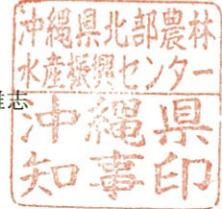 沖縄県北部農林
水産振興センター
志
沖縄県
知事印